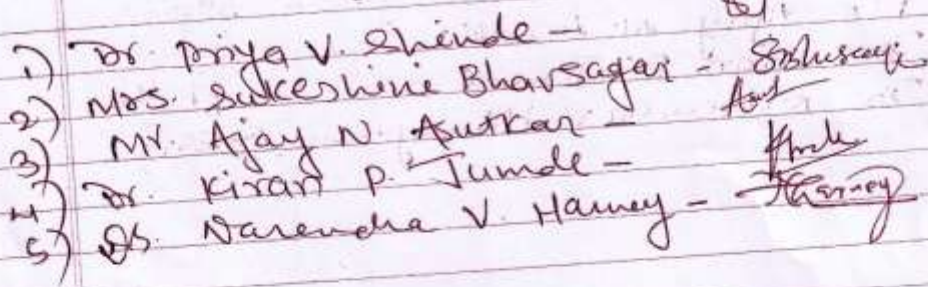 1) Dr. Priya V. Shende -
2) Mrs. Sukeshini Bhavsagar -
3) Mr. Ajay N. Autkar -
4) Dr. Kiran P. Jumde -
5) Dr. Narendra V. Harney - Harney